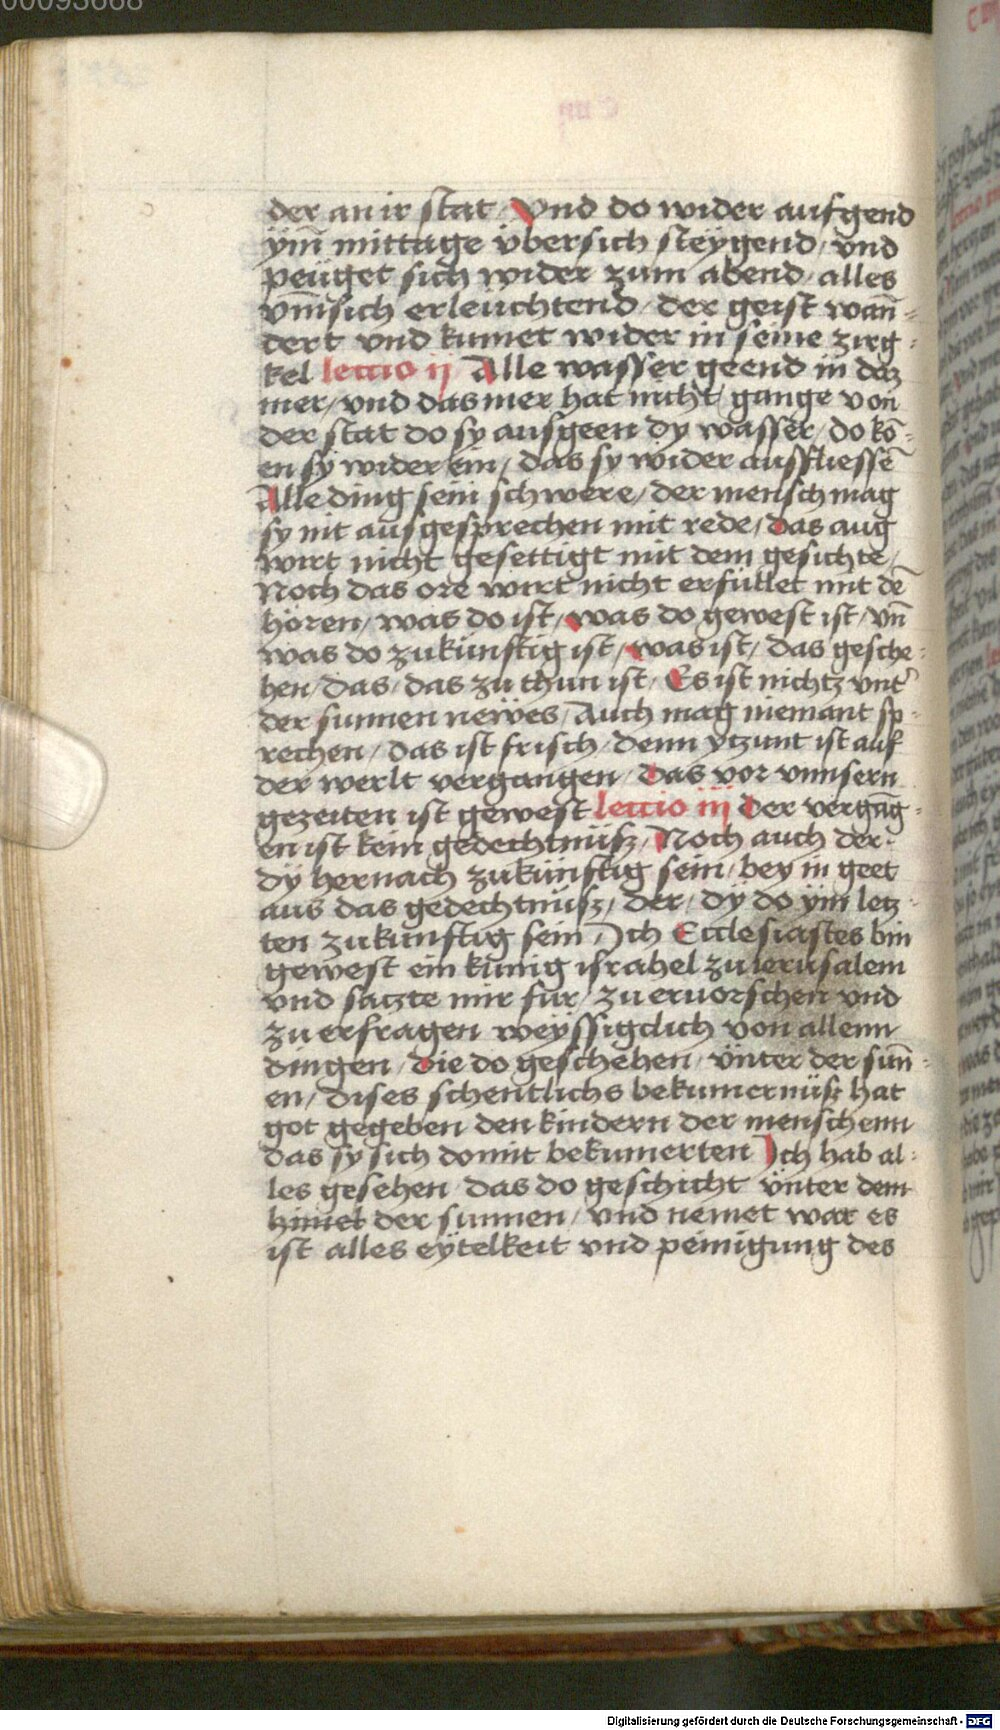 00093668
der an ir stat / Vnd do wider aufgend
ÿm̄ mittage v̈bersich steÿgend / vnd
peüget sich wider zum abend / alles
vm̄sich erleuchtend / der geist wan̄-
dert vnd kumet wider in seine zirg-
kel lectio ij Alle wasser geend in daz
mer / vnd das mer hat nicht / gange von
der stat do sy ausgeen dy wasser / do kō-
en sy wider ein / das sy wider ausfliessē
Alle ding sein schwere / der mensch mag
sy nit ausgesprechen mit rede / das aug
wirt nicht gesettigt mit dem gesichte /
Noch das ore wirt nicht erfüllet mit dē
hören / was do ist / was do gewest ist / vn̄
was do zukünftig ist / was ist / das gesche-
hen / das / das zu thun ist / Es ist nichtz vnt'
der sunnen neẅes / Auch mag niemant sp-
rechen / das ist frisch / denn ytzunt ist auf
der werlt vergangen / das vor vnnsern
gezeiten ist gewest lectio iij der vergāg-
en ist kein gedechtnüsz / Noch auch der
dÿ hernach zukünftig sein / bey in geet
aus das gedechtnüsz / der / dÿ do ÿm letz-
ten zukunftig sein / Ich Ecclesiastes bin
gewest ein kunig israhel zu ierusalem
vnd saczte mir für / zu eruorschen vnd
zu erfragen weÿssigclich von allenn
dingen / die do geschehen / v̈nter der sun̄-
en / dises schentlichs bekumernüsz hat
got gegeben den kindern der menschenn
das sy sich domit bekumerten Ich hab al-
les gesehen das do geschicht v̈nter dem
himel der sunnen / vnd nemet war es
ist alles eÿtelkeit vnd peinigung des
Digitalisierung gefördert durch die Deutsche Forschungsgemeinschaft - DFG